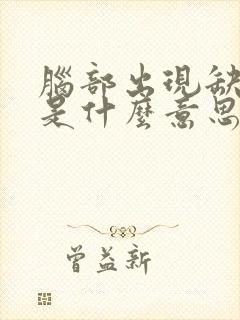 腦部出現缺
是什麼意思
曾益新